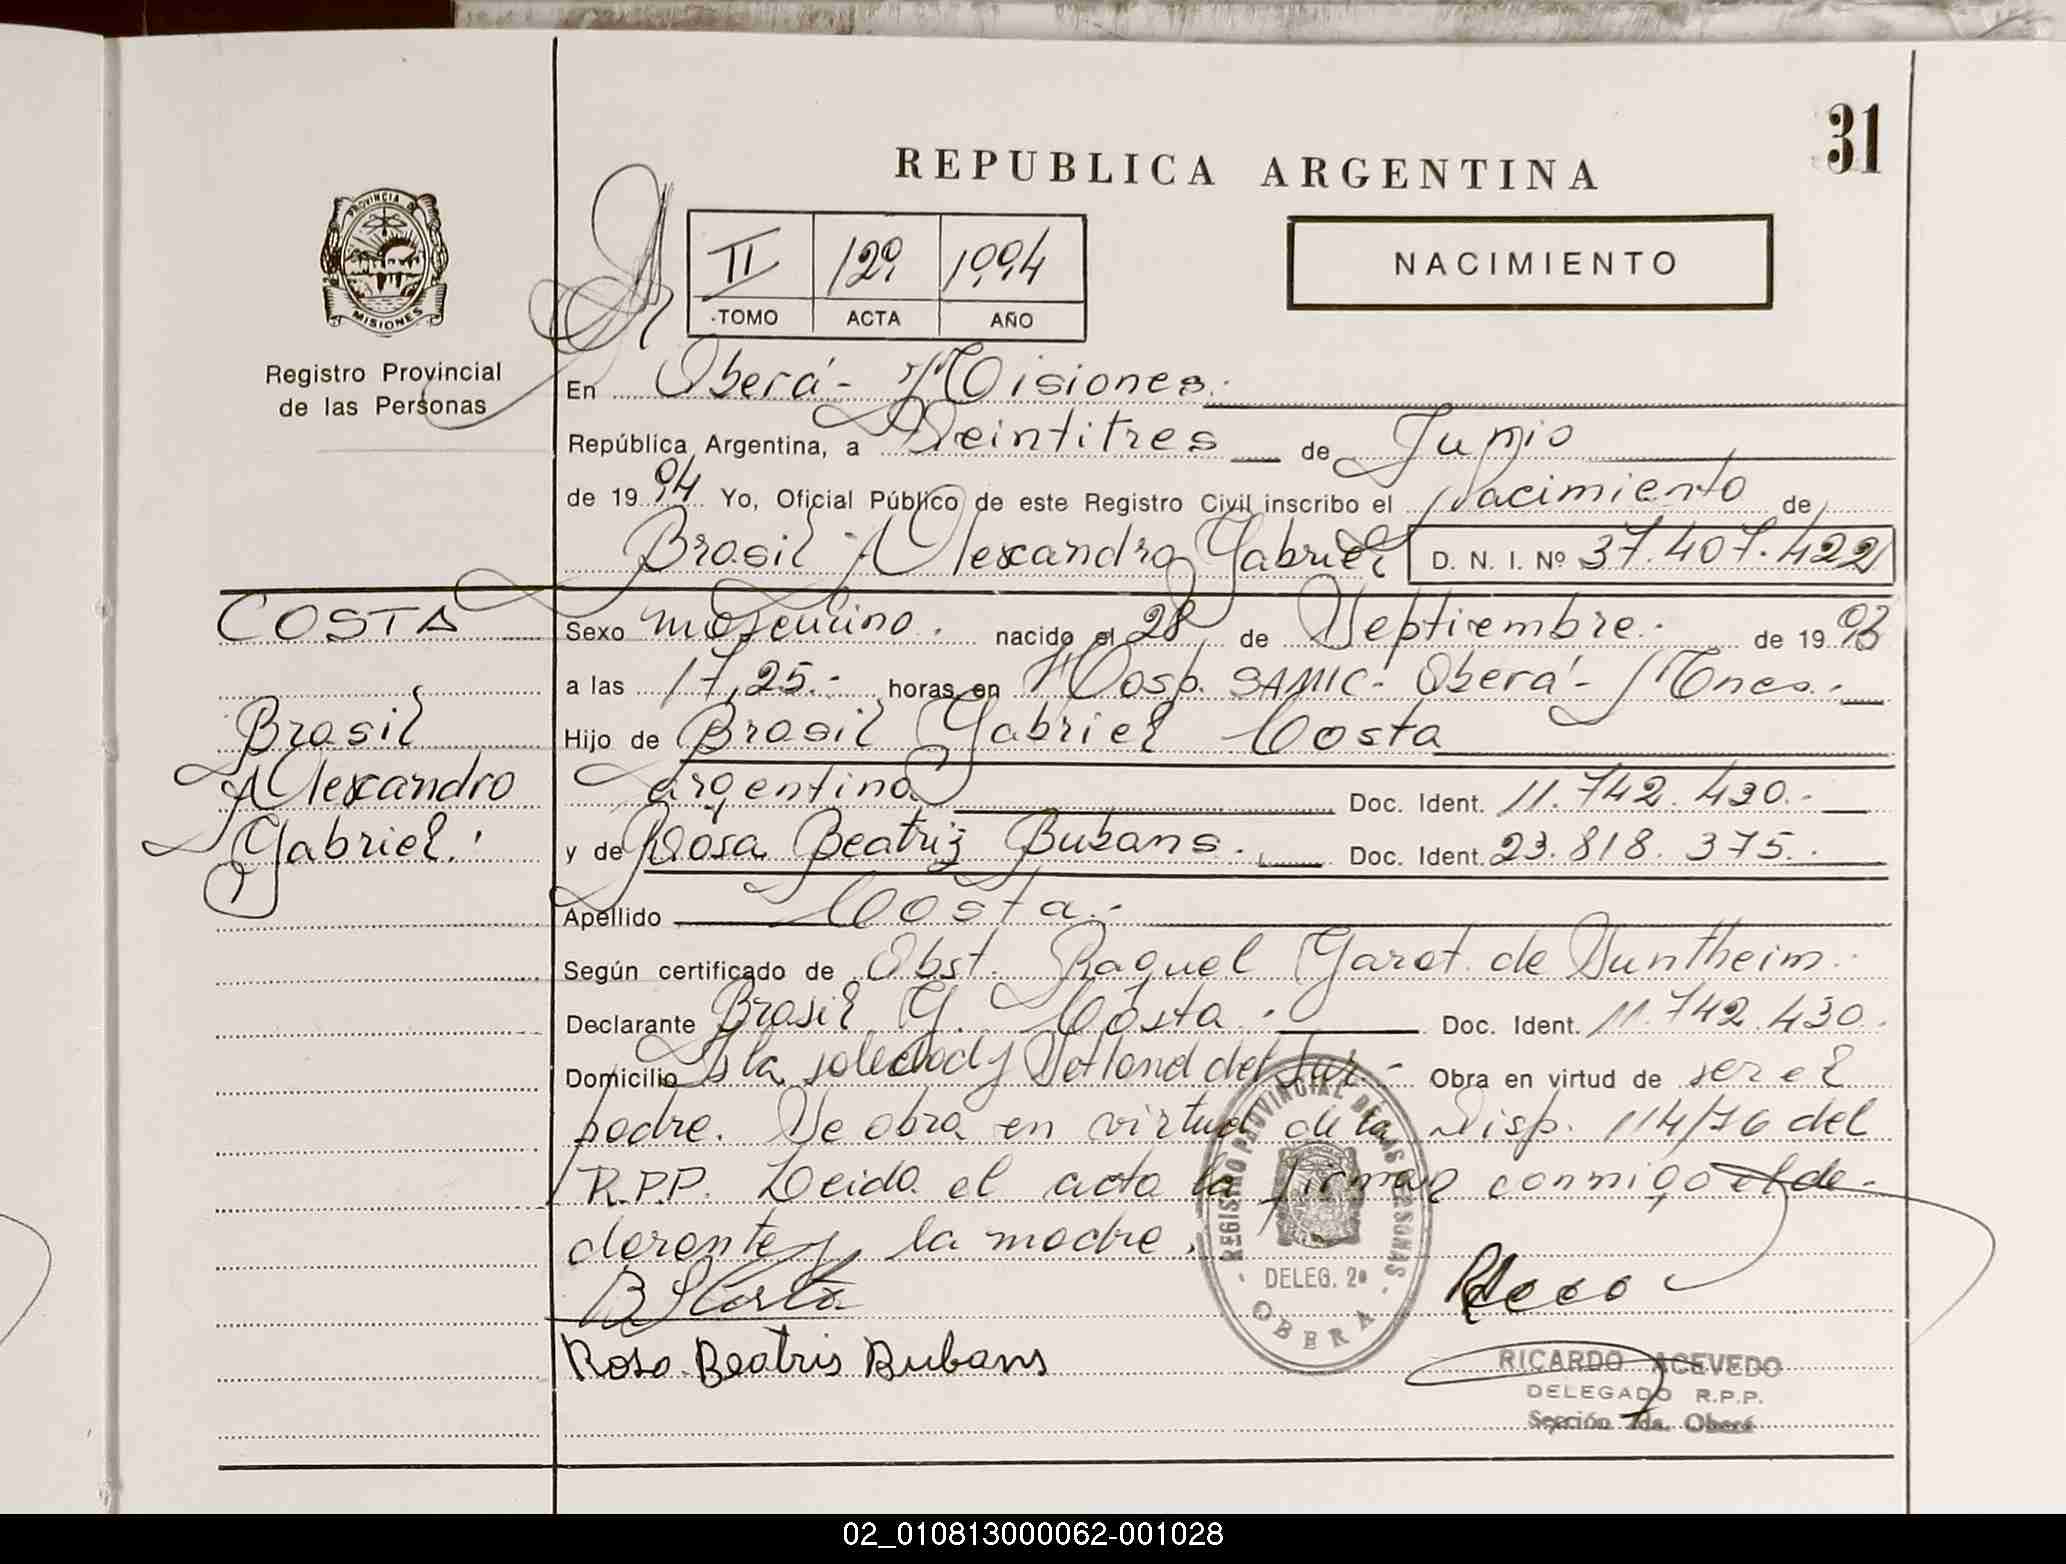 31
REPUBLICA ARGENTINA
NACIMIENTO
II 129 1994
TOMO ACTA AÑO
PROVINCIA DE
MISIONES
Registro Provincial
de las Personas
En Oberá - Misiones.
República Argentina, a Veintitres de Junio
de 1994 Yo, Oficial Público de este Registro Civil inscribo el Nacimiento de
Brasil Alexandro Gabriel D. N. I. Nº 37.407.422
COSTA
Brasil
Alexandro
Gabriel.
Sexo masculino. nacido el 28 de Septiembre. de 1993
a las 17,25.- horas en Hosp. SAMIC - Oberá - Mnes.-
Hijo de Brasil Gabriel Costa
argentina Doc. Ident. 11.742.430.-
y de Rosa Beatriz Bubans. Doc. Ident. 23.818.375.-
Apellido Costa.-
Según certificado de Obst. Raquel Garet de Suntheim.
Declarante Brasil G. Costa.- Doc. Ident. 11.742.430.
Domicilio Isla soledad y Setland del Sur.- Obra en virtud de ser el
padre. Se obra en virtud de la Disp. 114/76 del
R.P.P. Leida el acta la firman conmigo el de-
clarante y la madre.
B G Costa
Rosa Beatris Bubans
REGISTRO PROVINCIAL DE LAS PERSONAS
DELEG. 2ª
OBERA
RICARDO ACEVEDO
DELEGADO R.P.P.
Sección 2da. Oberá
02_010813000062-001028